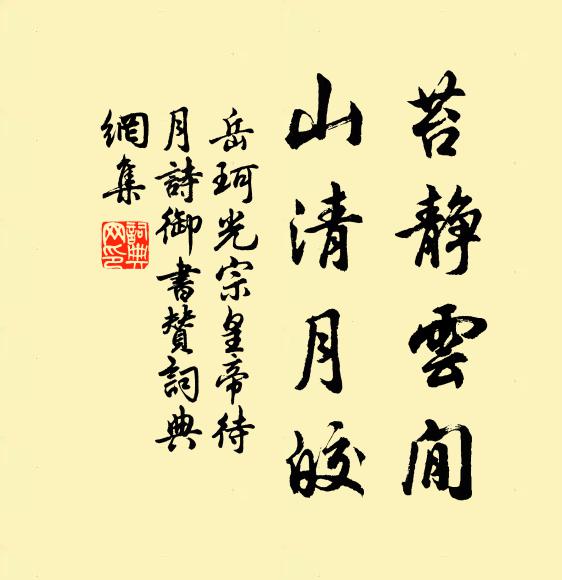 苔静雲閒
山清月皎
岳珂光宗皇帝待
月詩御書贊詞典
網集
詞典
网印